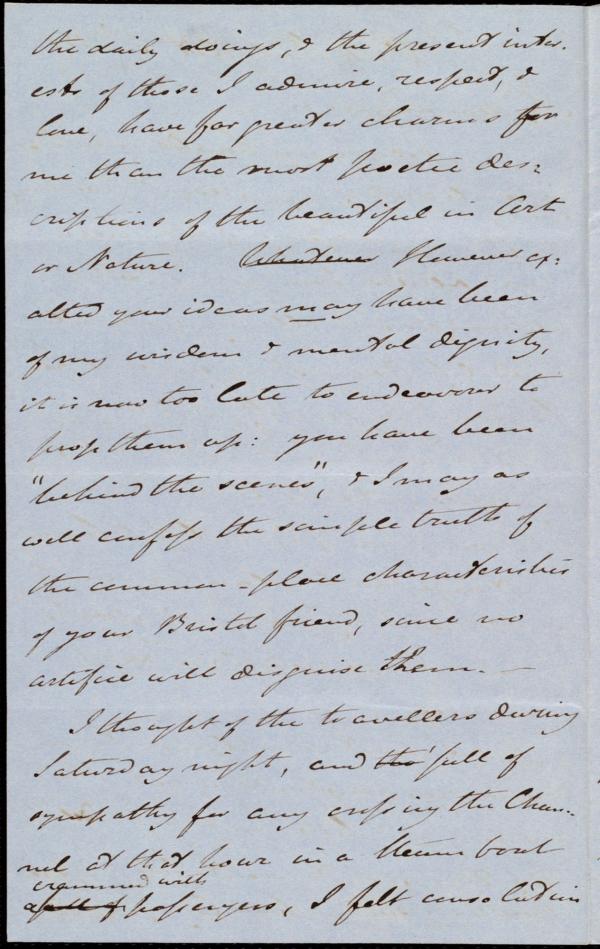 the daily doings, & the present inter-
ests of those I admire, respect, &
love, have far greater charms for
me than the most poetic des=
criptions of the beautiful in Art
or Nature. Whatever However ex=
alted your ideas may have been
of my wisdom & mental dignity,
it is now too late to endeavour to
prop them up: you have been
"behind the scenes", & I may as
well confess the simple truth of
the common-place characteristics
of your Bristol friend, since no
artifice will disguise them. —
I thought of the travellers during
Saturday night, and tho' full of
sympathy for any crossing the Chan-
nel at that hour in a steam boat
crammed with
full of passengers, I felt consolation